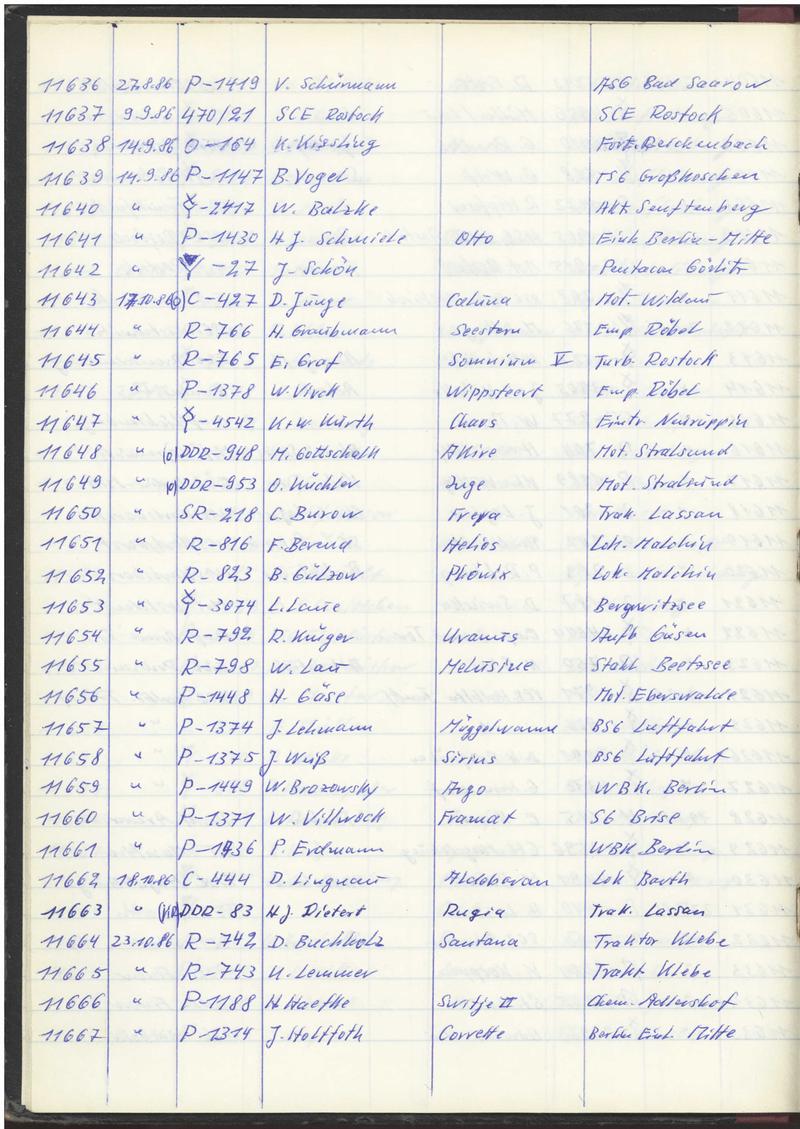 11636 27.8.86 P-1419 V. Schürmann ASG Bad Saarow
11637 9.9.86 470/21 SCE Rostock SCE Rostock
11638 14.9.86 O-164 K. Kiesling Fort. Reichenbach
11639 14.9.86 P-1147 B. Vogel TSG Großkoschen
11640 " Y-2417 W. Batzke Akt. Senftenberg
11641 " P-1430 H.J. Schmiele Otto Einh. Berlin-Mitte
11642 " Y-27 J. Schön Pentacon Görlitz
11643 17.10.86 (o) C-427 D. Junge Caluna Mot. Wildau
11644 " R-766 H. Graubmann Seestern Emp. Röbel
11645 " R-765 E. Graf Somnium V Turb. Rostock
11646 " P-1378 W. Virck Wippsteert Emp. Röbel
11647 " Y-4542 K+W. Wurth Chaos Eintr. Neuruppin
11648 " (o) DDR-948 M. Gottschalk Mot. Stralsund
11649 " (o) DDR-953 O. Küchler Inge Mot. Stralsund
11650 " SR-218 C. Burow Freya Trak. Lassan
11651 " R-816 F. Berend Helios Lok. Malchin
11652 " R-823 B. Gülzow Phönix Lok. Malchin
11653 " Y-3074 L. Laue Bergwitzsee
11654 " R-792 R. Krüger Uranus Aufb. Güsen
11655 " R-798 W. Lau Melusine Stahl Beetzsee
11656 " P-1448 H. Gäse Mot. Eberswalde
11657 " P-1374 J. Lehmann Müggelwanne BSG Luftfahrt
11658 " P-1375 J. Weiß Sirius BSG Luftfahrt
11659 " P-1449 W. Brozowsky Argo WBK. Berlin
11660 " P-1371 W. Villwock Framat SG Brise
11661 " P-1436 P. Erdmann WBK. Berlin
11662 18.10.86 C-444 D. Lingnau Aldebaran Lok Barth
11663 " DDR-83 H.J. Dietert Rugia Trak. Lassan
11664 23.10.86 R-742 D. Buchholz Santana Traktor Ukebe
11665 " R-743 U. Lemmer Trakt. Ukebe
11666 " P-1188 H. Haefke III Chem. Adlershof
11667 " P-1314 J. Holtfoth Corvette Berlin Einh. Mitte